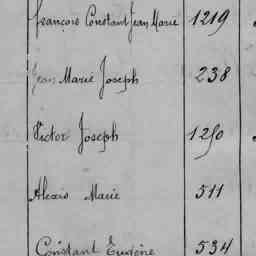 François Constant Jean Marie 1219
Jean Marie Joseph 238
Victor Joseph 1250
Alexis Marie 511
Constant Eugène 534